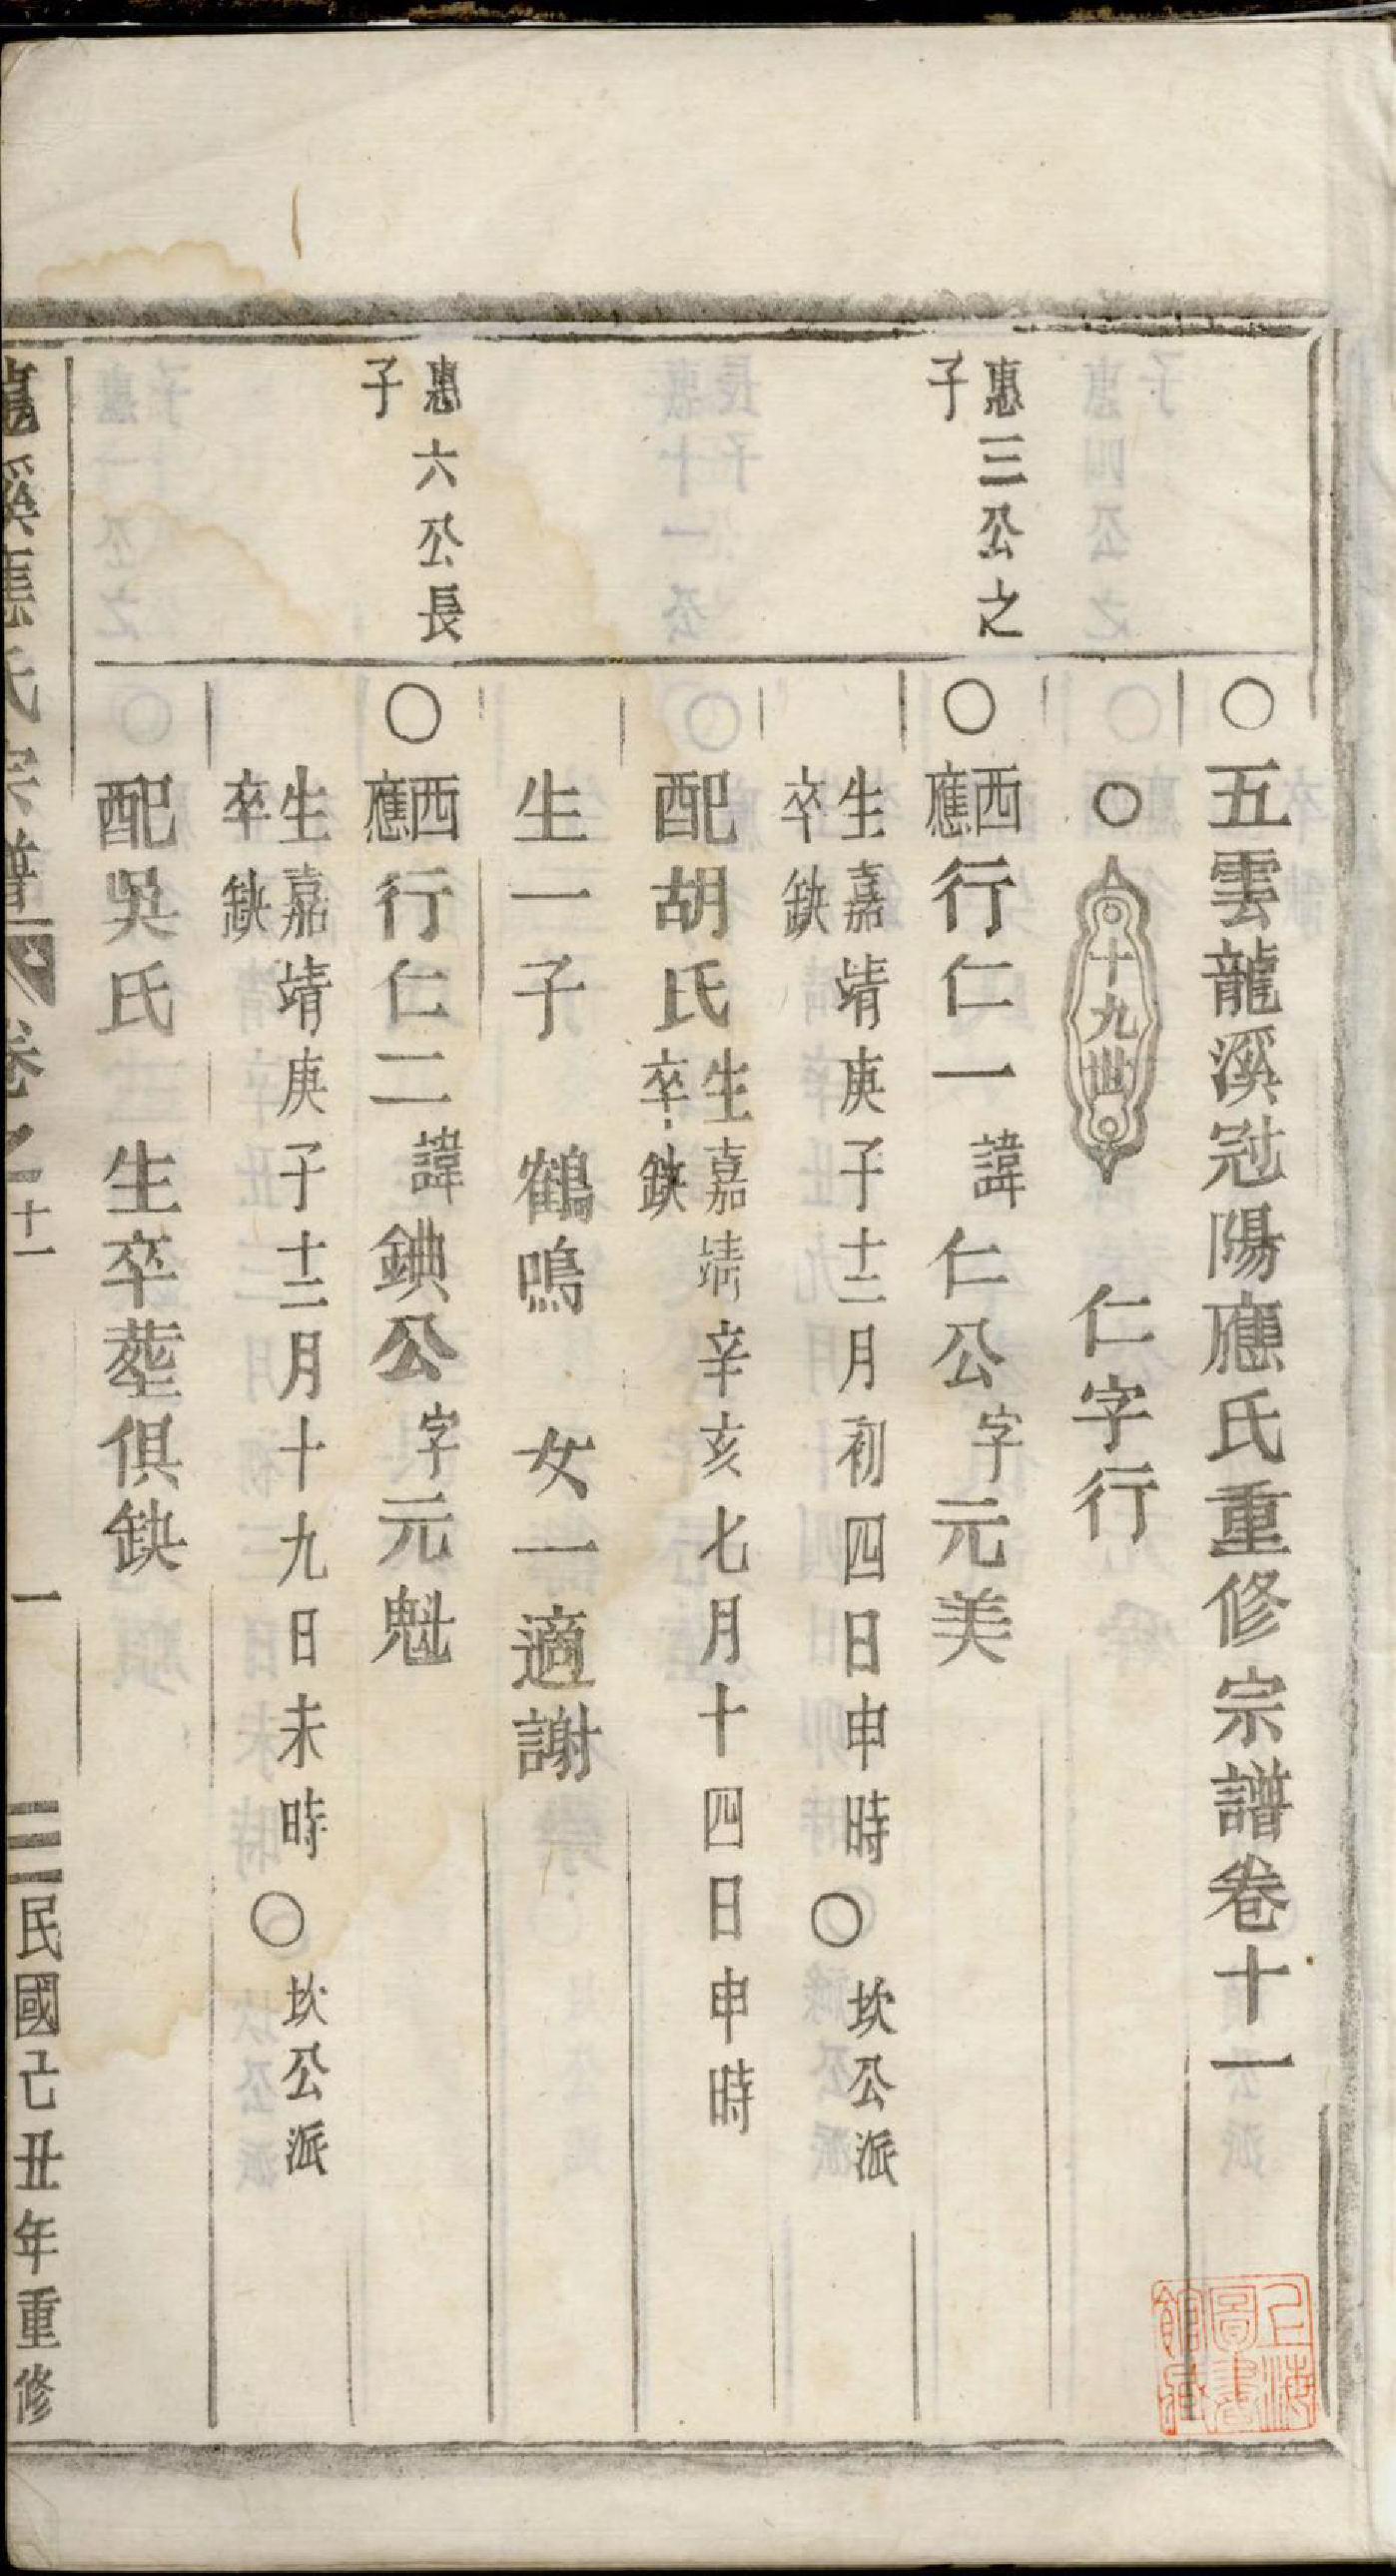 ○五雲龍溪冠陽應氏重修宗譜卷十一
○十九世 仁字行
惠三公之
子
○西應行仁一諱仁公字元美
生嘉靖庚子十二月初四日申時○坎公派
卒缺
配胡氏生嘉靖辛亥七月十四日申時
卒缺
生一子 鶴鳴 女一適謝
惠六公長
子
○西應行仁二諱錪公字元魁
生嘉靖庚子十二月十九日未時○坎公派
卒缺
配吳氏 生卒塟俱缺
龍溪應氏宗譜 卷之十一 一 民國己丑年重修
上海圖書館藏